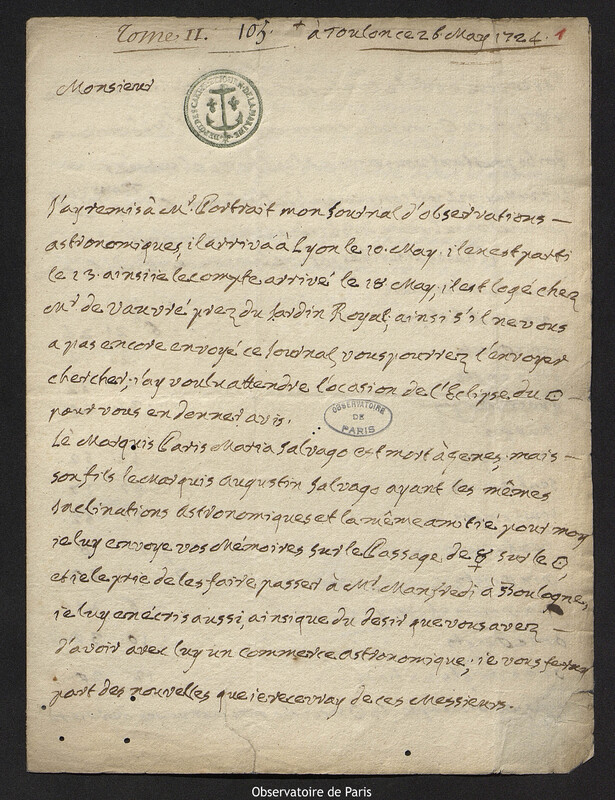 Tome II. 105. + à Toulon ce 26 May 1724. 1
Monsieur
DEPOT DES CARTES DE LA MARINE
J'ay remis à Mr. Portrait mon Journal d'observations
astronomiques, il arriva à Lyon le 10. May. il en est parti
le 13. ainsi ie le compte arrivé le 18 May, il est logé chez
Mr. de Vauvré prez du Jardin Royal, ainsi s'il ne vous
a pas encore envoyé ce Journal vous pourrez l'envoyer
chercher; i'ay voulu attendre l'ocasion de l'Eclipse du ☉
pour vous en donner avis.
OBSERVATOIRE DE PARIS
Le Marquis Paris Maria Salvago est mort à genes, mais
son fils le Marquis augustin Salvago ayant les mêmes
Inclinations astronomiques et la même amitié pour moy
ie luy envoye vos Mémoires sur le Passage de ☿ sur le ☉,
et ie le prie de les faire passer à Mr. Manfredi à Boulogne,
ie luy en écris aussi, ainsi que du desir que vous avez
d'avoir avec luy un commerce astronomique; ie vous feray
part des nouvelles que ie recevray de ces Messieurs.
Observatoire de Paris